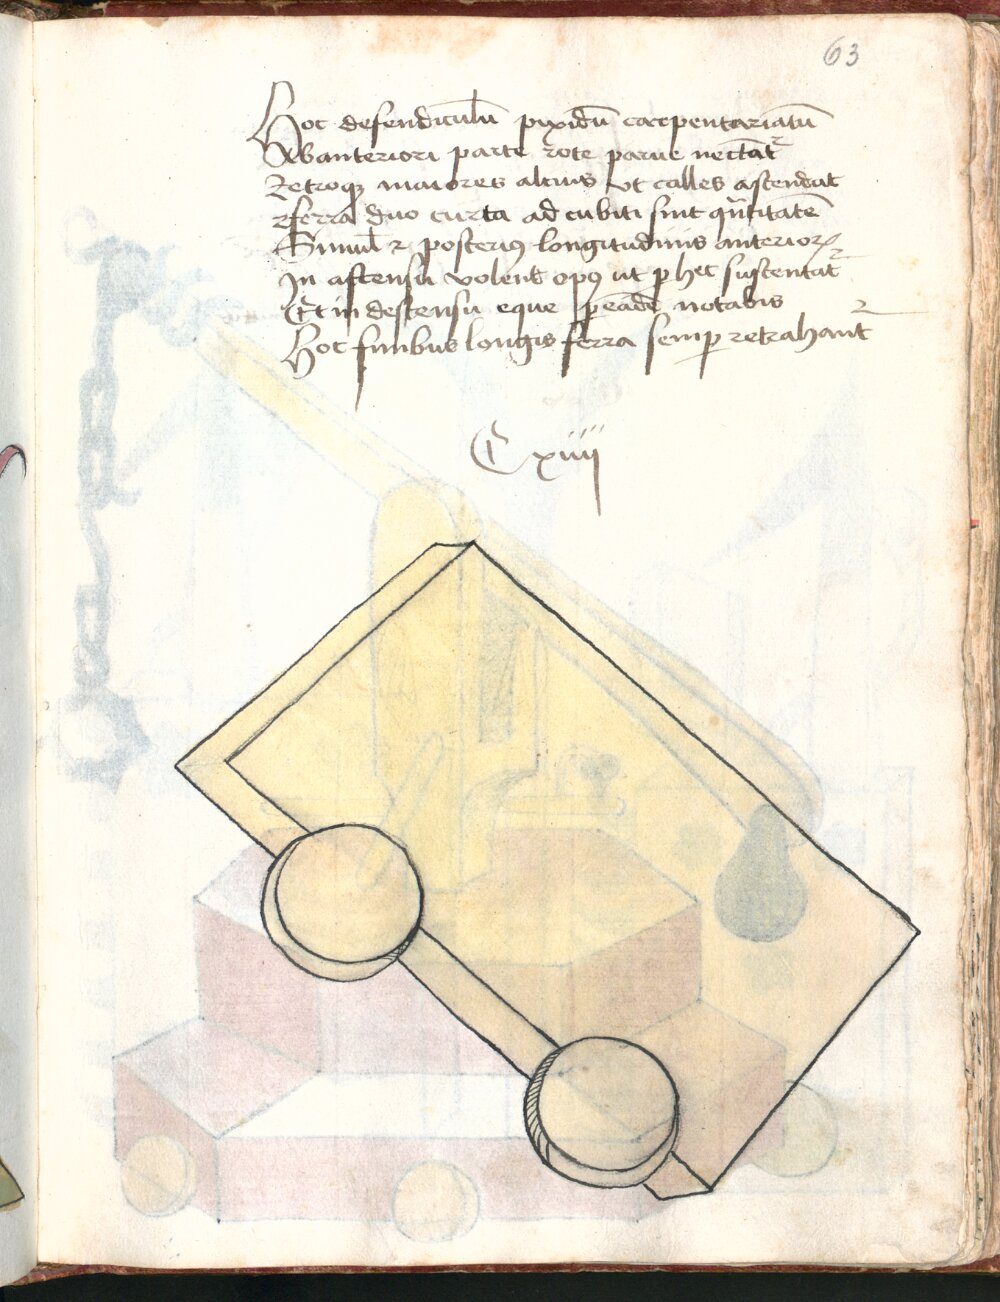 63
Hoc defendiculū pixidū carpentariatū
Ab anteriori parte rote parue nectāt
Retroqꝫ maiores altius vt calles ascendāt
⁊ ferra duo curta ad cubiti sint qūtitatē
Simul ⁊ posteriꝯ longitudinis anterioꝝ
In ascensu volenṫ opꝯ ut ꝑ hec sustentāt
Et in descensu eque ꝑ eādē notabis
Hoc funibus longis ferra semꝑ retrahant᷑
C xiiii